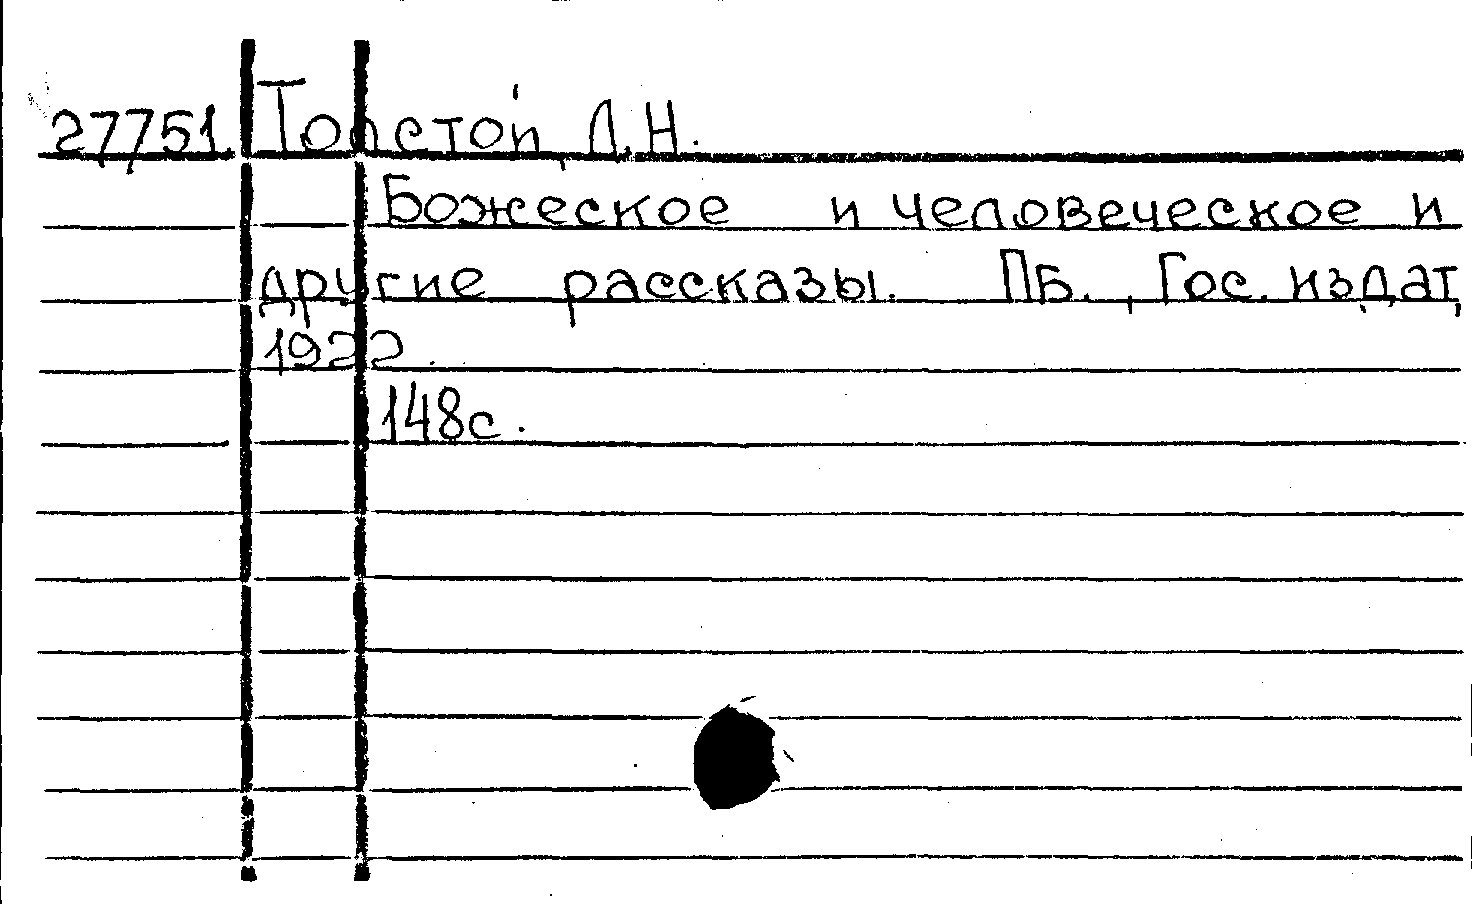 27751. Толстой, Л.Н.
Божеское и человеческое и
другие рассказы. ПБ., Гос. издат,
1922.
148с.